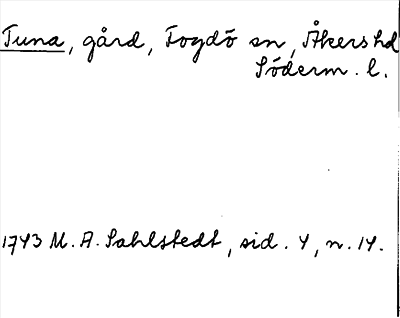 Tuna, gård, Fogdö sn, Åkers hd
Söderm. l.
1743 M. A. Sahlstedt, sid. 4, n. 14.